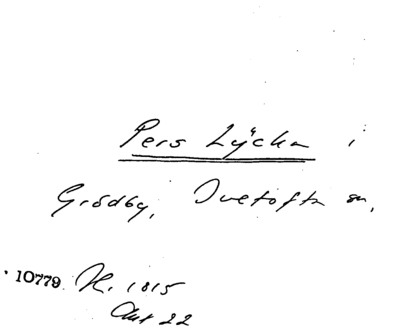 Pers Lÿcka i
Grödby, Ivetofta sn,
10779 K. 1815
Akt 22